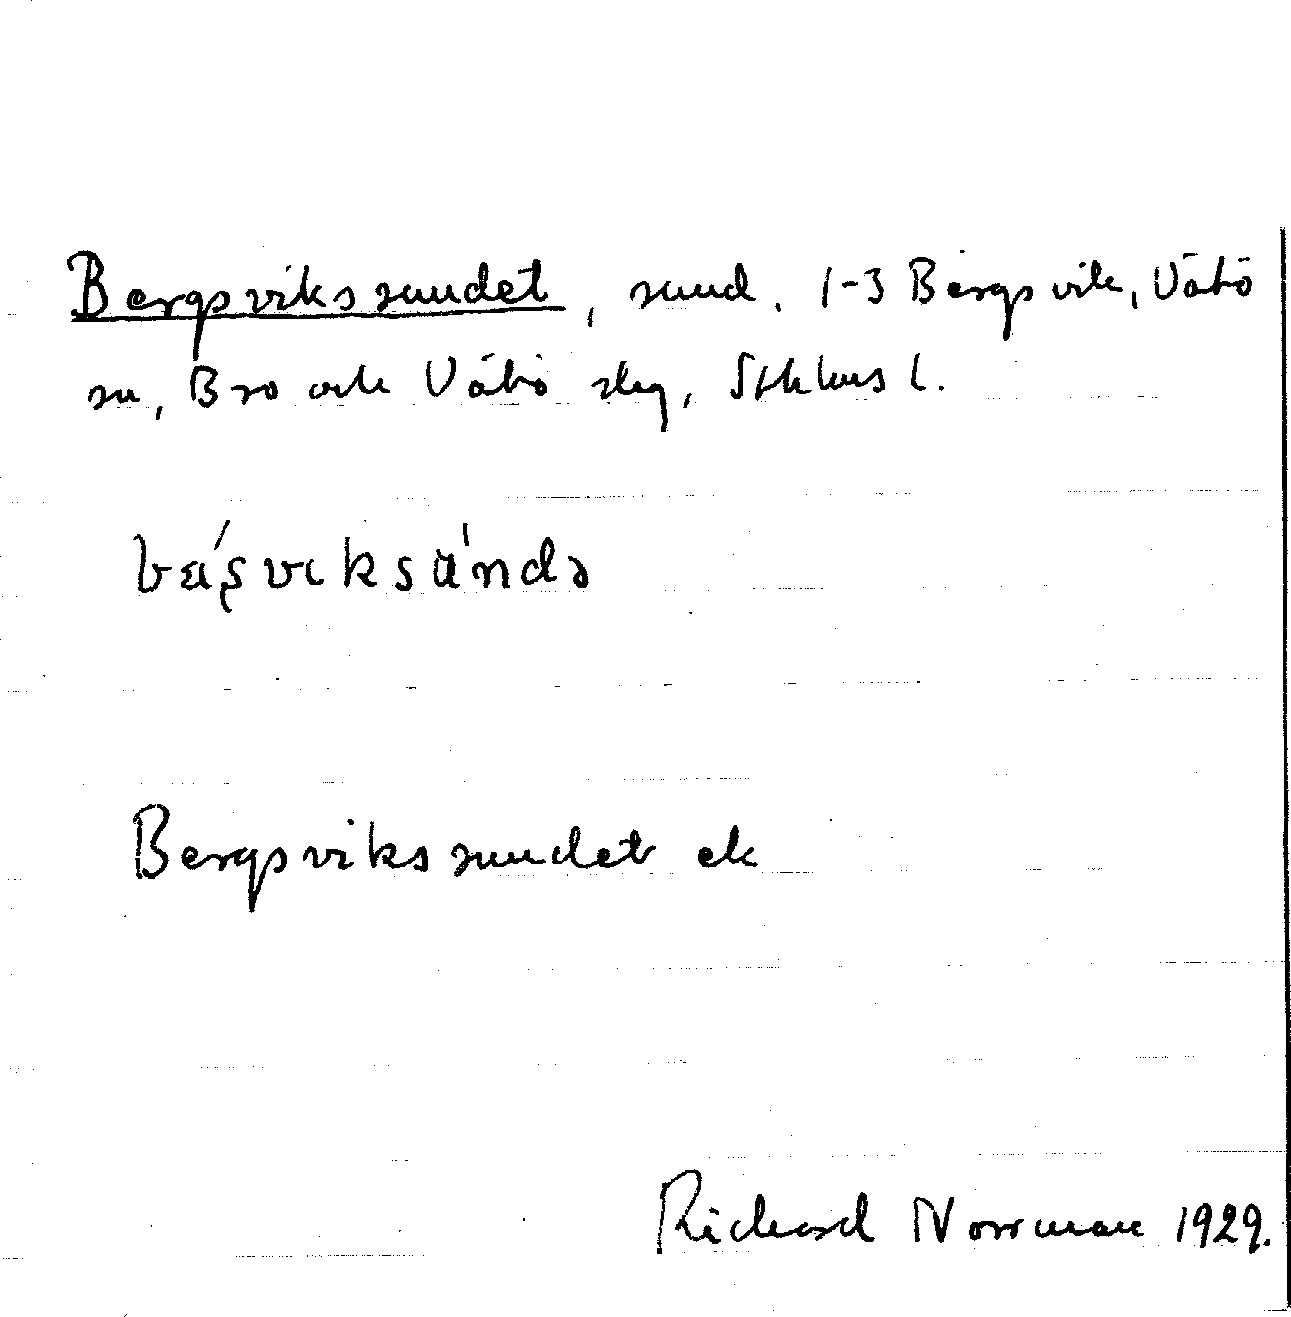 Bergsvikssundet, sund. 1-3 Bergsvik, Vätö
sn, Bro och Vätö slg, Sthlms l.
Bergsvikssundet ek
Richard Norrman 1929.